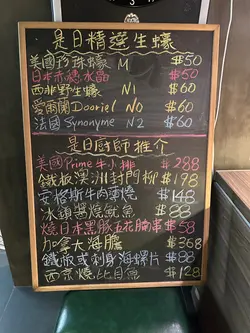 是日精選生蠔
美國珍珠蠔 M $50
日本赤穗水晶 $50
西非野生蠔 N1 $60
愛爾蘭Dooriel N0 $60
法國Synonyme N2 $60
是日廚師推介
美國Prime牛小排 $288
鐵板澳洲封門柳 $178
安格斯牛肉薄燒 $148
冰鎮醬燒魷魚 $88
燒日本黑豚五花腩串 $58
加拿大海膽 $368
鐵板或刺身海螺片 $88
西京燒比目魚 $128